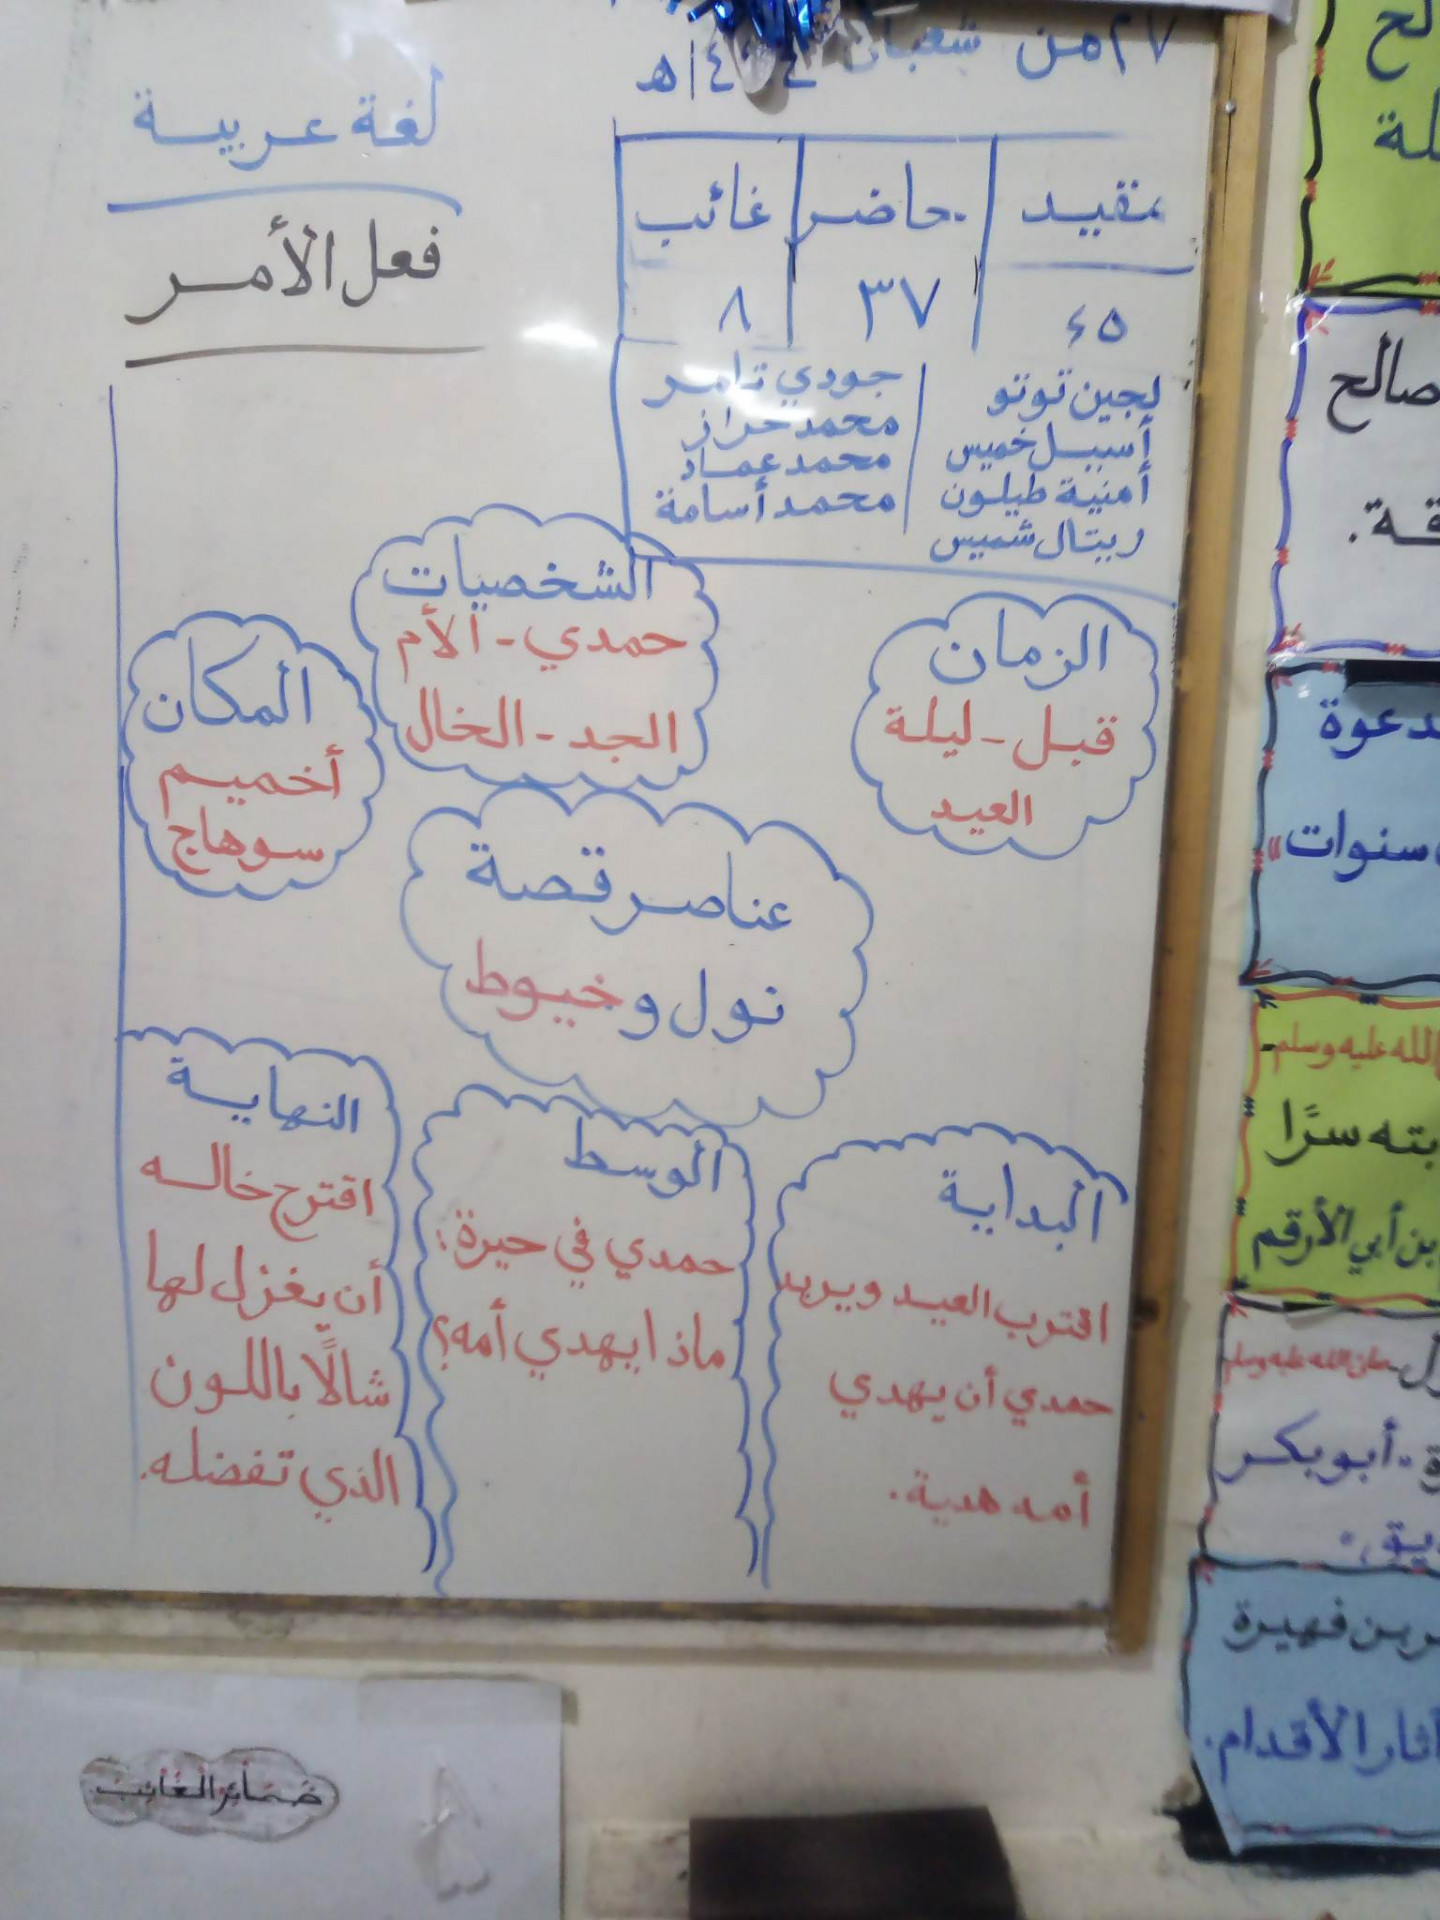 ٢٧ من شعبان
١٤٤هـ
لغة عربية
فعل الأمر
مقيد حاضر غائب
٤٥ ٣٧ ٨
لجين توتو
أسيل خميس
أمنية طيلون
ريتال شميس
جودي تامر
محمد حراز
محمد عماد
محمد أسامة
الزمان
قبل - ليلة
العيد
الشخصيات
حمدي - الأم
الجد - الخال
المكان
أخميم
سوهاج
عناصر قصة
نول و خيوط
البداية
اقترب العيد ويريد
حمدي أن يهدي
أمه هدية.
الوسط
حمدي في حيرة:
ماذا يهدي أمه؟
النهاية
اقترح خاله
أن يغزل لها
شالًا باللون
الذي تفضله.
صالح
سنوات
الله عليه وسلم
سرًا
بن أبي الأرقم
صلى الله عليه وسلم
أبو بكر
بن فهيرة
آثار الأقدام.
ضمائر الغائب